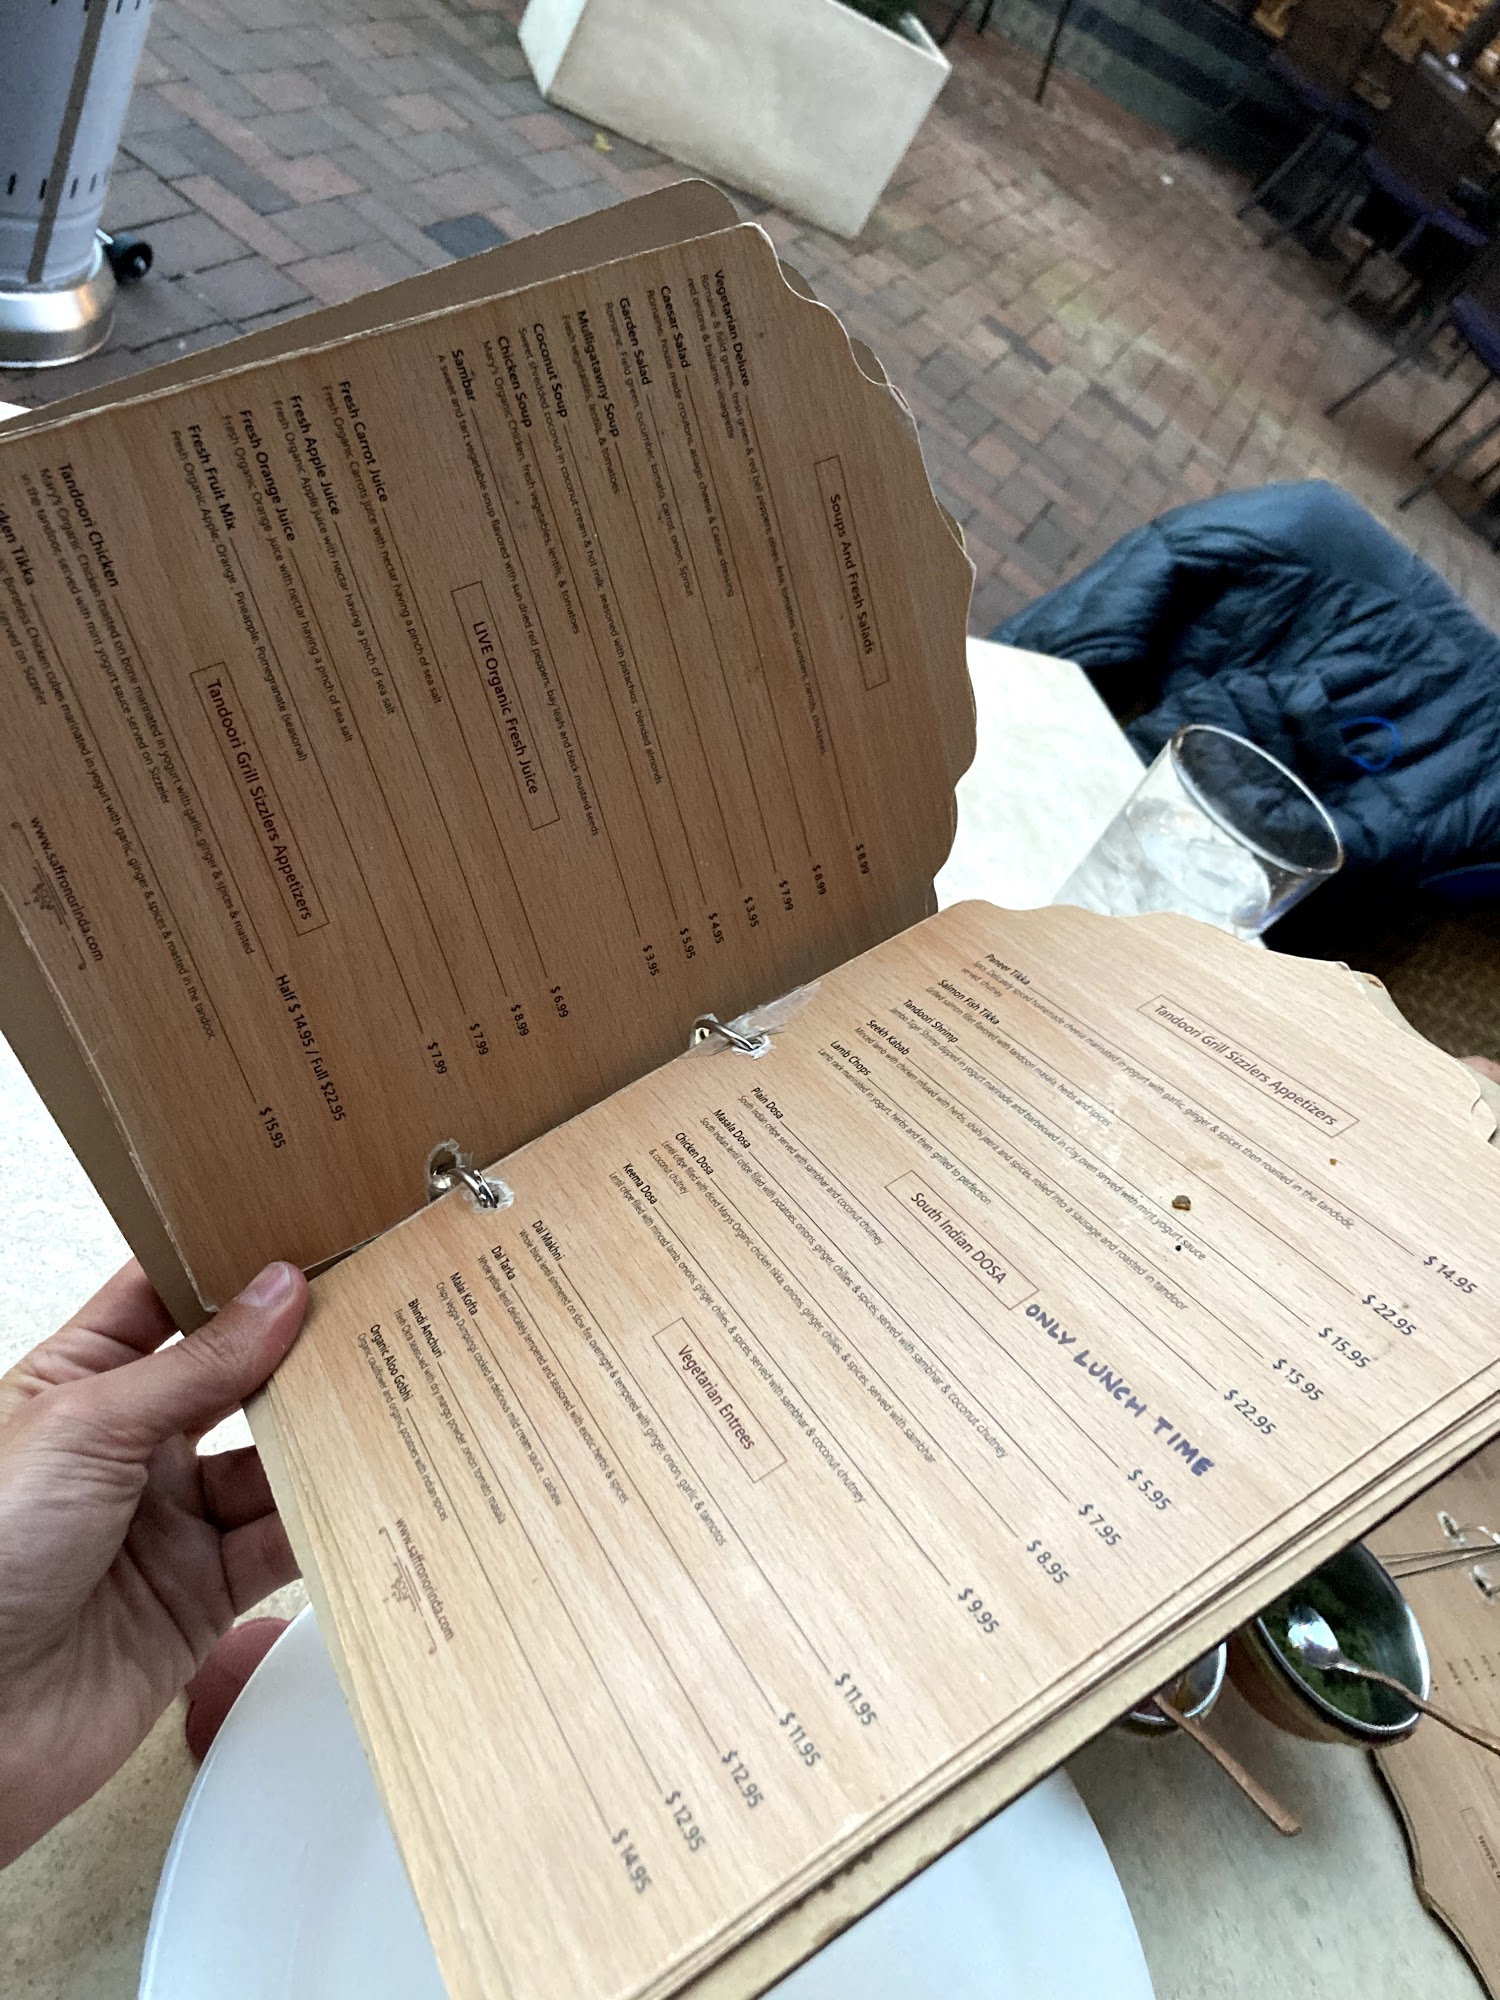 Soups And Fresh Salads
Vegetarian Deluxe $ 8.99
Romaine & field greens, fresh green & red bell peppers, olives, feta, tomatoes, cucumbers, carrots, chickpeas,
red onions & balsamic vinaigrette
Caesar Salad $ 8.99
Romaine, house made croutons, asiago cheese & Caesar dressing
Garden Salad $ 7.99
Romaine, Field green, cucumber, tomato, carrot, onion, Sprout
Mulligatawny Soup $ 3.95
Fresh vegetables, lentils, & tomatoes
Coconut Soup $ 4.95
Sweet shredded coconut in coconut cream & hot milk, seasoned with pistachios, blended almonds
Chicken Soup $ 5.95
Mary's Organic Chicken, fresh vegetables, lentils, & tomatoes
Sambar $ 3.95
A sweet and tart vegetable soup flavored with sun dried red peppers, bay leafs and black mustard seeds
LIVE Organic Fresh Juice
Fresh Carrot Juice $ 6.99
Fresh Organic Carrots juice with nectar having a pinch of sea salt
Fresh Apple Juice $ 8.99
Fresh Organic Apple juice with nectar having a pinch of sea salt
Fresh Orange Juice $ 7.99
Fresh Organic Orange juice with nectar having a pinch of sea salt
Fresh Fruit Mix $ 7.99
Fresh Organic Apple, Orange, Pineapple, Pomegranate (seasonal)
Tandoori Grill Sizzlers Appetizers
Tandoori Chicken Half $ 14.95 / Full $22.95
Mary's Organic Chicken roasted on bone marinated in yogurt with garlic, ginger & spices & roasted
in the tandoor, served with mint yogurt sauce served on Sizzeler
Tikka $ 15.95
Boneless Chicken cubes marinated in yogurt with garlic, ginger & spices & roasted in the tandoor,
served on Sizzeler
www.saffronorinda.com
Tandoori Grill Sizzlers Appetizers
Paneer Tikka $ 14.95
Spicy, Delicately spiced homemade cheese marinated in yogurt with garlic, ginger & spices then roasted in the tandoor,
served chutney
Salmon Fish Tikka $ 22.95
Grilled salmon fillet flavored with tandoori masala, herbs and spices
Tandoori Shrimp $ 15.95
Jambo Tiger Shrimp dipped in yogurt marinade and barbecued in clay oven served with mint yogurt sauce
Seekh Kabab $ 15.95
Minced lamb with chicken infused with herbs, shahi jeera and spices, rolled into a sausage and roasted in tandoor
Lamb Chops $ 22.95
Lamb rack marinated in yogurt, herbs and then grilled to perfection
South Indian DOSA ONLY LUNCH TIME
Plain Dosa $ 5.95
South Indian crêpe served with sambhar and coconut chutney
Masala Dosa $ 7.95
South Indian lentil crêpe filled with potatoes, onions, ginger, chilies & spices, served with sambhar & coconut chutney
Chicken Dosa $ 8.95
Lentil crêpe filled with diced Mary's Organic chicken tikka, onions, ginger, chilies, & spices, served with sambhar
& coconut chutney
Keema Dosa $ 9.95
Lentil crêpe filled with minced lamb, onions, ginger, chilies, & spices, served with sambhar & coconut chutney
Vegetarian Entrees
Dal Makhni $ 11.95
Whole black lentil simmered on slow fire overnight & tempered with ginger, onion, garlic & tamotos
Dal Tarka $ 11.95
Whole yellow lentil delicately tempered and seasoned with exotic herbs & spices
Malai Kofta $ 12.95
Crispy Veggie Dumplings cooked in delicious mild cream sauce, cashew
Bhindi Amchuri $ 12.95
Fresh Okra seasoned with dry mango powder, onion tomato masala
Organic Aloo Gobhi $ 14.95
Organic cauliflower and organic potatoes with indian spices
www.saffronorinda.com